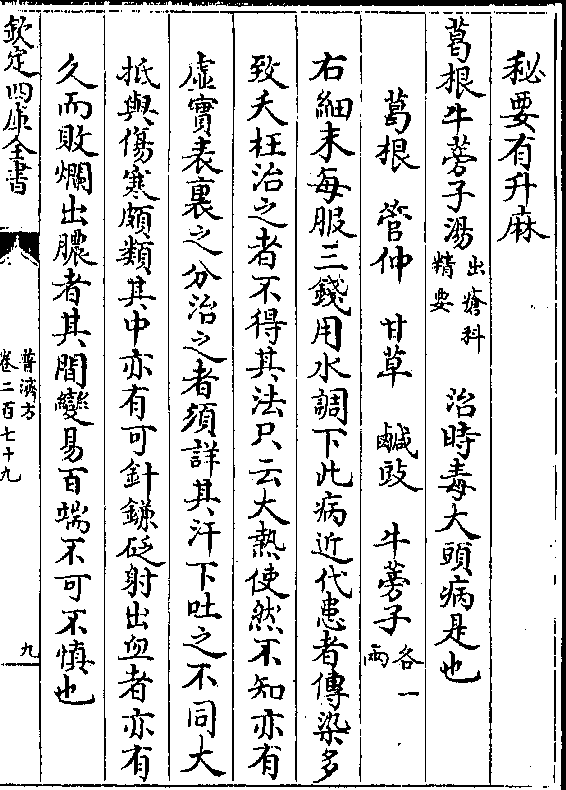 秘要有升麻
葛根牛蒡子湯出瘡科精要　治時毒大頭病是也
葛根　管仲　甘草　鹹豉　牛蒡子各一兩
右細末每服三錢用水調下此病近代患者傳染多
致夭枉治之者不得其法只云大熱使然不知亦有
虛實表裏之分治之者須詳其汗下吐之不同大
抵與傷寒頗類其中亦有可針鐮砭射出血者亦有
久而敗爛出膿者其間變易百端不可不慎也
欽定四庫全書
普濟方
卷二百七十九
九